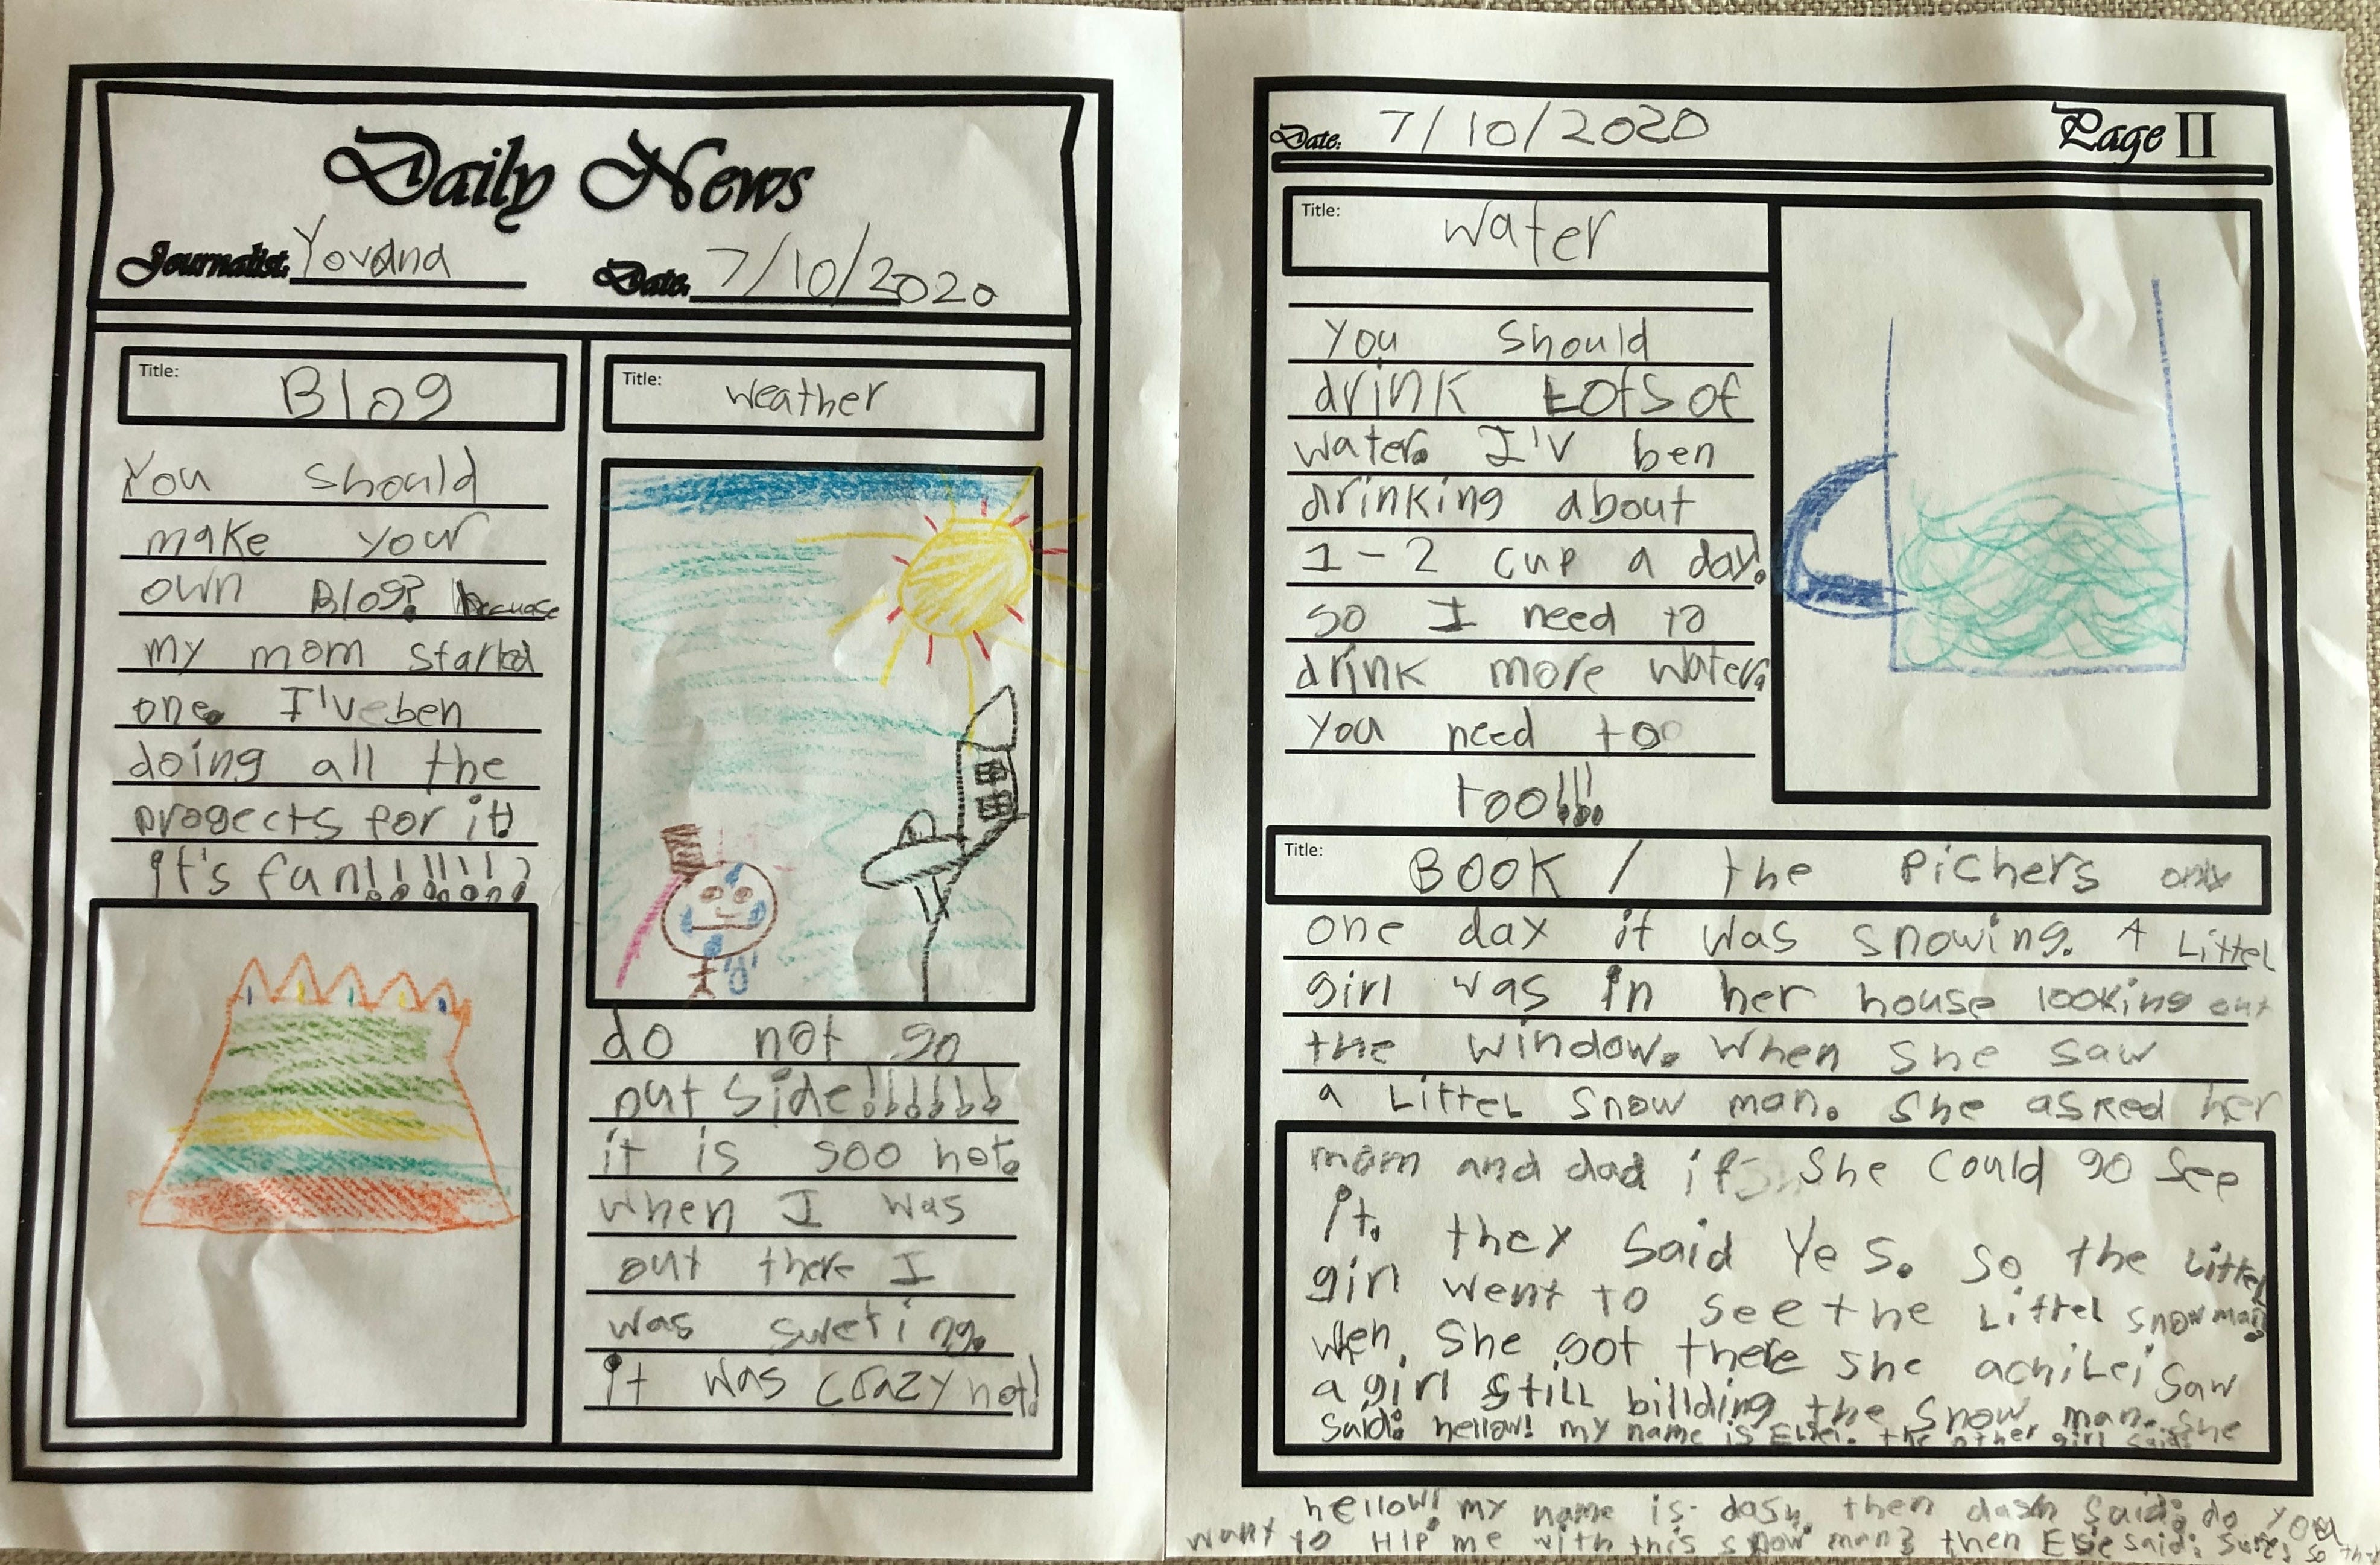 Daily News
Journalist: Yovana
Date: 7/10/2020
Title: Blog
You should
make your
own Blog? becuase
my mom started
one. I'v eben
doing all the
progects for it!
it's fun!!!!!!!
Title: weather
do not go
out side!!!!!!
it is soo hot.
when I was
out there I
was sweting.
it was crazy hot!
Date: 7/10/2020
Page II
Title: water
you should
drink LOts of
water. I'v ben
drinking about
1-2 cup a day!
so I need to
drink more water.
you need to
too!!!
Title: BOOK / the pichers only
one day it was snowing. A Littel
girl was in her house looking out
the window. When she saw
a LitteL snow man. she asked her
mom and dad if she could go see
it. they said Yes. so the Littel
girl went to see the Littel snowman.
When she got there she achiLei saw
a girl stiLL billding the snow man. she
said: hellow! my name is Elsei. the other girl said:
hellow! my name is dash. then dash said: do you
want to Hlp me with this snow man? then Elsie said: Sure! so